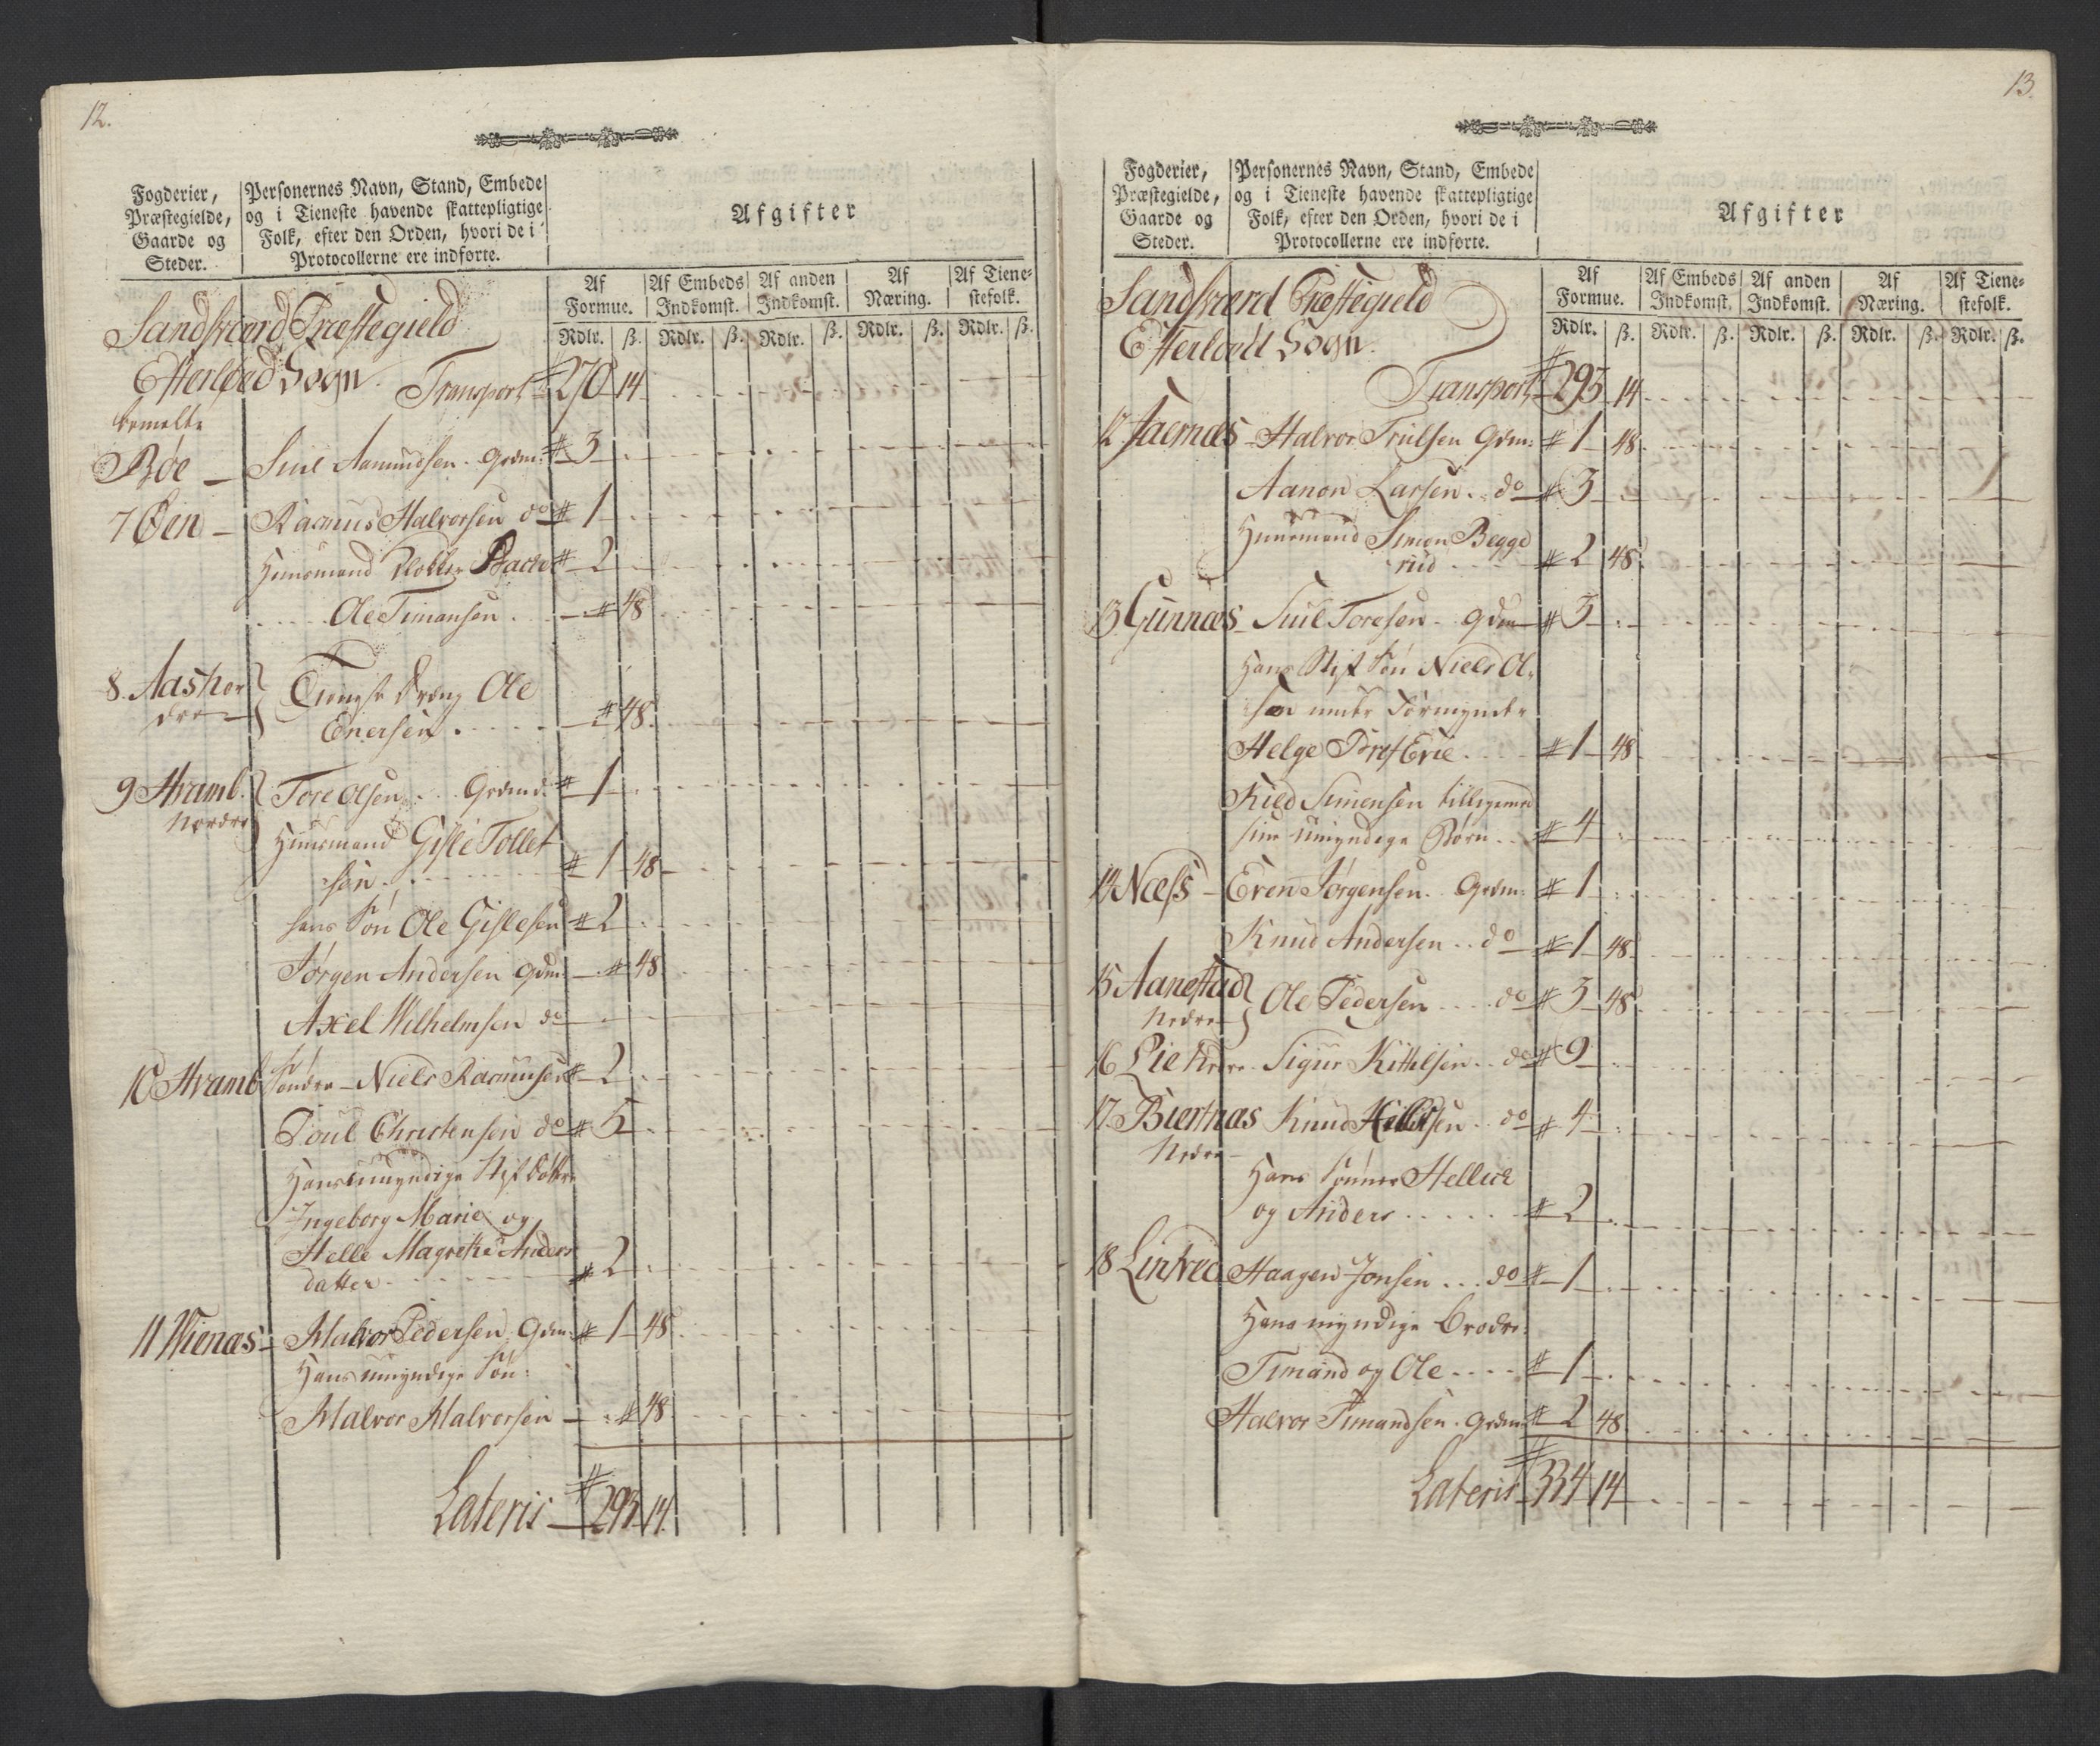 12.
Fogderier,
Præstegielde,
Gaarde og
Steder.
Personernes Navn, Stand, Embede
og i Tieneste havende skattepligtige
Folk, efter den Orden, hvori de i
Protocollerne ere indførte.
Afgifter
Af Formue. Af Embeds Indkomst. Af anden Indkomst. Af Næring. Af Tienestefolk.
Rdlr. ß. Rdlr. ß. Rdlr. ß. Rdlr. ß. Rdlr. ß.
Sandsværd Præstegield
Efterløed Sogn. Transport 270 14
bemelte
Bøe Siul Aamundsen Grdm: 3
7 Øen Rasmus Halvorsen do 1
Huusmand 2
Ole Timansen 48
8. Aas Ole
Enersen 48.
9 Hvamb. Tore Olsen Grdmd. 1
Nordre Huusmand Gisle Tollef
søn 1 48
hans Søn Ole Gislesen 2
Jørgen Andersen Gdm. 48
Axel Wilhelmsen do
10 Hvamb Søndre Niels Rasmusen 2
Poul Christensen do 5
Hans umyndige Stifdøttre
Ingeborg Marie og
Helle Magrethe Anders
datter 2
11 Wienæs Halvor Pedersen Gdm: 1 48
Hans umyndige Søn:
Halvor Halvorsen 48
Lateris 293 14
13.
Fogderier,
Præstegielde,
Gaarde og
Steder.
Personernes Navn, Stand, Embede
og i Tieneste havende skattepligtige
Folk, efter den Orden, hvori de i
Protocollerne ere indførte.
Afgifter
Af Formue. Af Embeds Indkomst. Af anden Indkomst. Af Næring. Af Tienestefolk.
Rdlr. ß. Rdlr. ß. Rdlr. ß. Rdlr. ß. Rdlr. ß.
Sandsværd Præstegield
Efterløed Sogn.
Transport 293 14
12 Jaernæs Halvor Trulsen Grdm: 1 48
Aanon Larsen do 3
Huusmand Simen Begge
rud 2 48
13 Gunnæs Siul Toresen Gdm 3
Hans Stif Søn Niels Ol,
sen under Formynder
Helge 1 48
Kield Simensen tilligemed
sine umyndige Børn 4
14 Næss Even Jørgensen Grdm: 1
Knud Andersen do 1 48
15 Aanestad Ole Pedersen do 3 48
Nedre
16 Lie Nedre Sigur Kittelsen do 9
17 Biertnæs Knud do 4
Nedre
Hans Sønner Hellick
og Anders 2
18 Lintved Haagen Jonsen do 1
Hans myndige Brødre:
Timand og Ole 1
Halvor Timandsen Grdm 2 48
Lateris 334 14